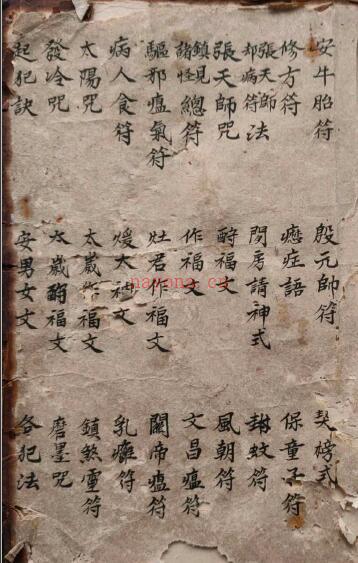 安牛胎符 殷元帥符 契榜式
修方符 症語 保童子符
張天師却病符法 房請神式 封蚊符
張天師咒 酧福文 風朝符
鎮見諸怪總符 作福文 文昌瘟符
驅邪瘟氣符 灶君作福文 關帝瘟符
病人食符 煖大神文 乳癰符
太陽咒 太歲作福文 鎮煞雷符
發冷咒 太歲酧福文 磨墨咒
起犯訣 安男女文 各犯法
nayona.cn